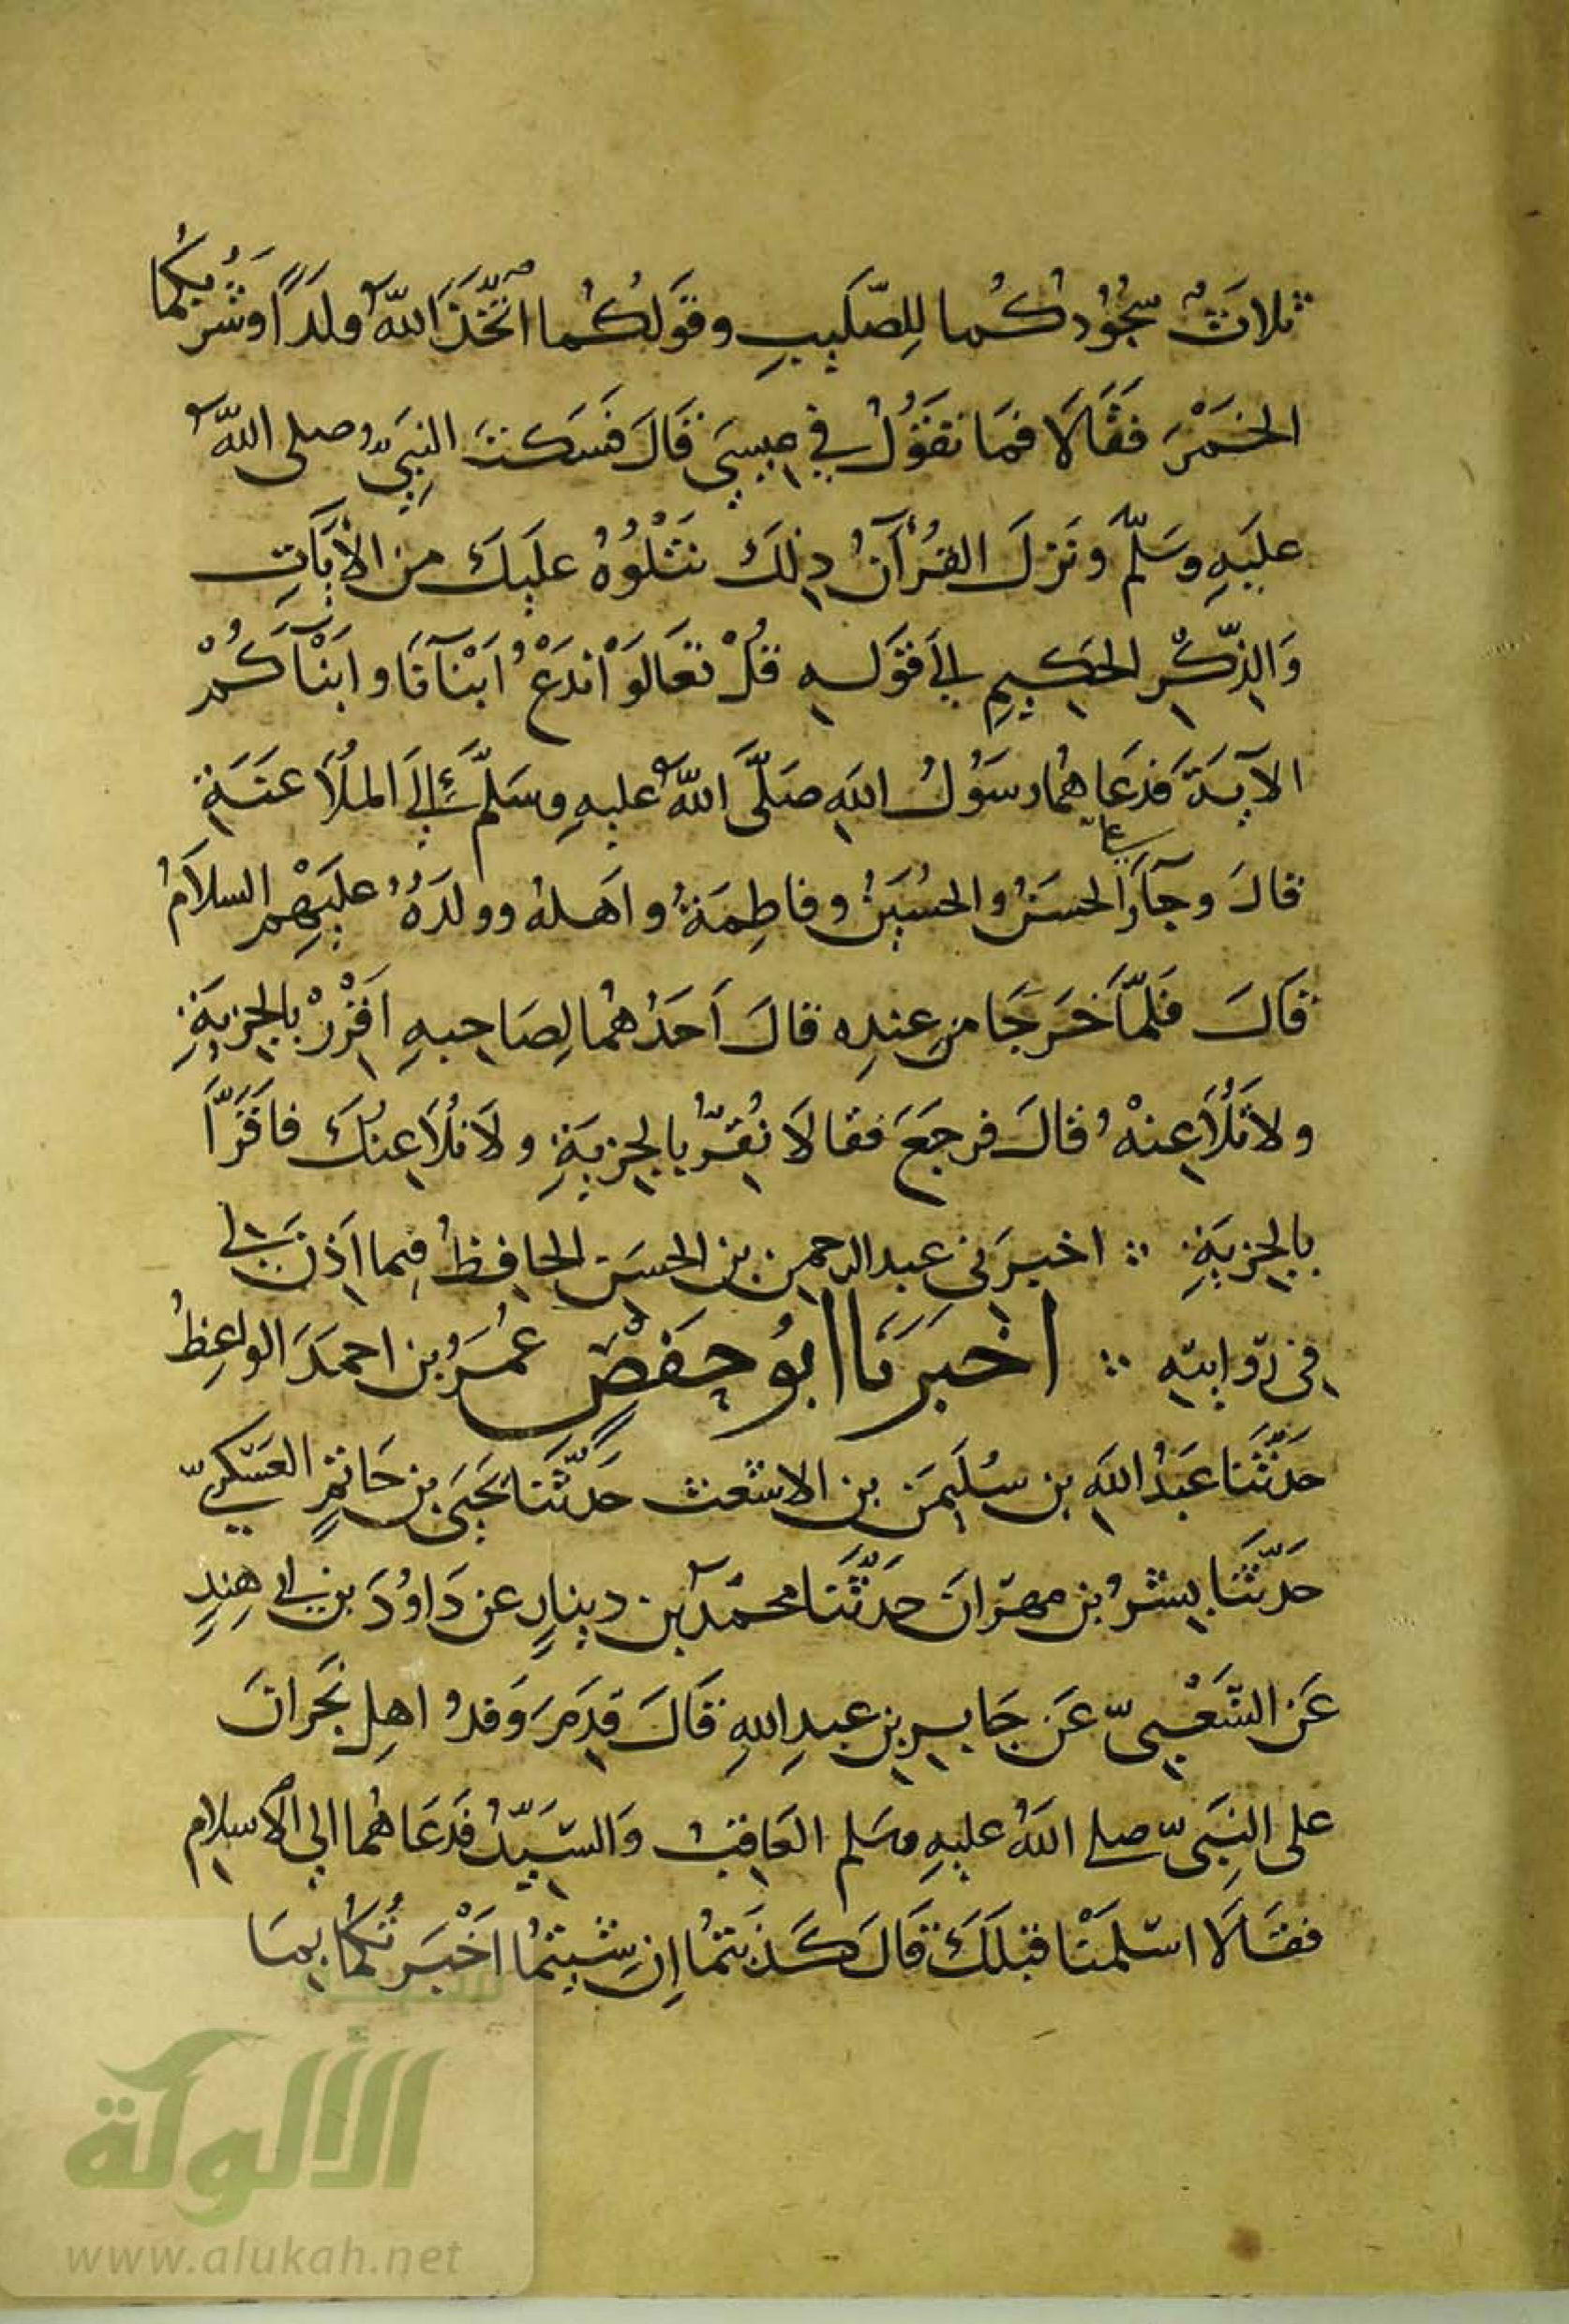 ثلاثٌ سُجُودُكُما لِلصَّلِيبِ وقَولُكُما اتَّخَذَ اللهُ ولَدًا وشُرْبُكُما
الخَمْرَ فَقَالَا فمَا تقَوُلُ في عِيسَى قَالَ فسَكتَ النبِيُّ صلى اللهُ
عليَهِ وسَلَّمَ ونَزلَ القُرْآنُ ذلِكَ نَتْلُوْهُ عليَكَ من الآيَاتِ
وَالذِّكْرِ الحكِيمِ إلى قَولهِ قُلْ تعَالَوْا نَدْعُ أبْنَآءَنَا وابْنَآءَكُمْ
الآيةَ فَدعَاهُما رسَوُلُ اللهِ صَلَّى اللهُ عليهِ وسَلَّمَ إلَى المُلَاعَنَةِ
قالَ وجآءَ الحسَنُ والحُسَينُ وفاطِمَةُ واهَلهُ وولدَهُ عليَهِمْ السلاَمُ
قَالَ فَلمَّا خَرَجَا منِ عِندِه قالَ اَحَدُهُمَا لِصَاحِبهِ اَقْرِرْ بِالجِزيَةِ
ولاَ تُلَاعِنْهُ قالَ فرجَعَ فقالَا نُقِرُّ بِالجِزيَةِ ولَا نُلَاعِنُكَ فاقَرَّا
بِالجِزيَةِ ∴ اخبرَنِي عبد الرحمن بن الحسَن الحافِظُ فِيما اَذِنَ لي
في رِوايتِه ∴ اخبَرَنَا ابوُ حفَصْ عُمَرُ بن احمَدَ الواعِظُ
حَدَّثَنَا عَبدُ اللهِ بن سُليَمن بن الاشعث حَدَّثَنَا يَحيَى بن حَاتمٍ العَسْكريّ
حَدَّثَنَا بِشرُ بن مهرَانَ حَدَّثَنَا محمّد بن دِينارٍ عن دَاوُدَ بن ابي هِندٍ
عَن الشَّعْبِيّ عَن جَابرِ بنِ عبدِ اللهِ قَالَ قدِمَ وَفدُ اهلِ نَجرانَ
على النبِيّ صلى اللهُ عليهِ وسَلم العَاقِبُ وَالسَّيِّدُ فَدَعَاهُما الي الاسلامِ
فقَالَا اسْلمَنْا قبْلَكَ قَالَ كَذَبتمُا إنِ شِيتمُا اَخْبَرتُكُما بِمَا
الألوكة
www.alukah.net